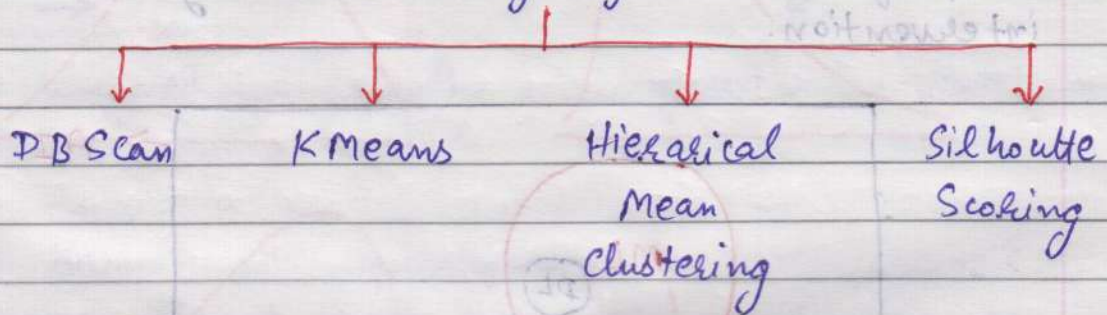 DB Scan
K Means
Hierarical
Mean
Clustering
Silhoutte
Scoring